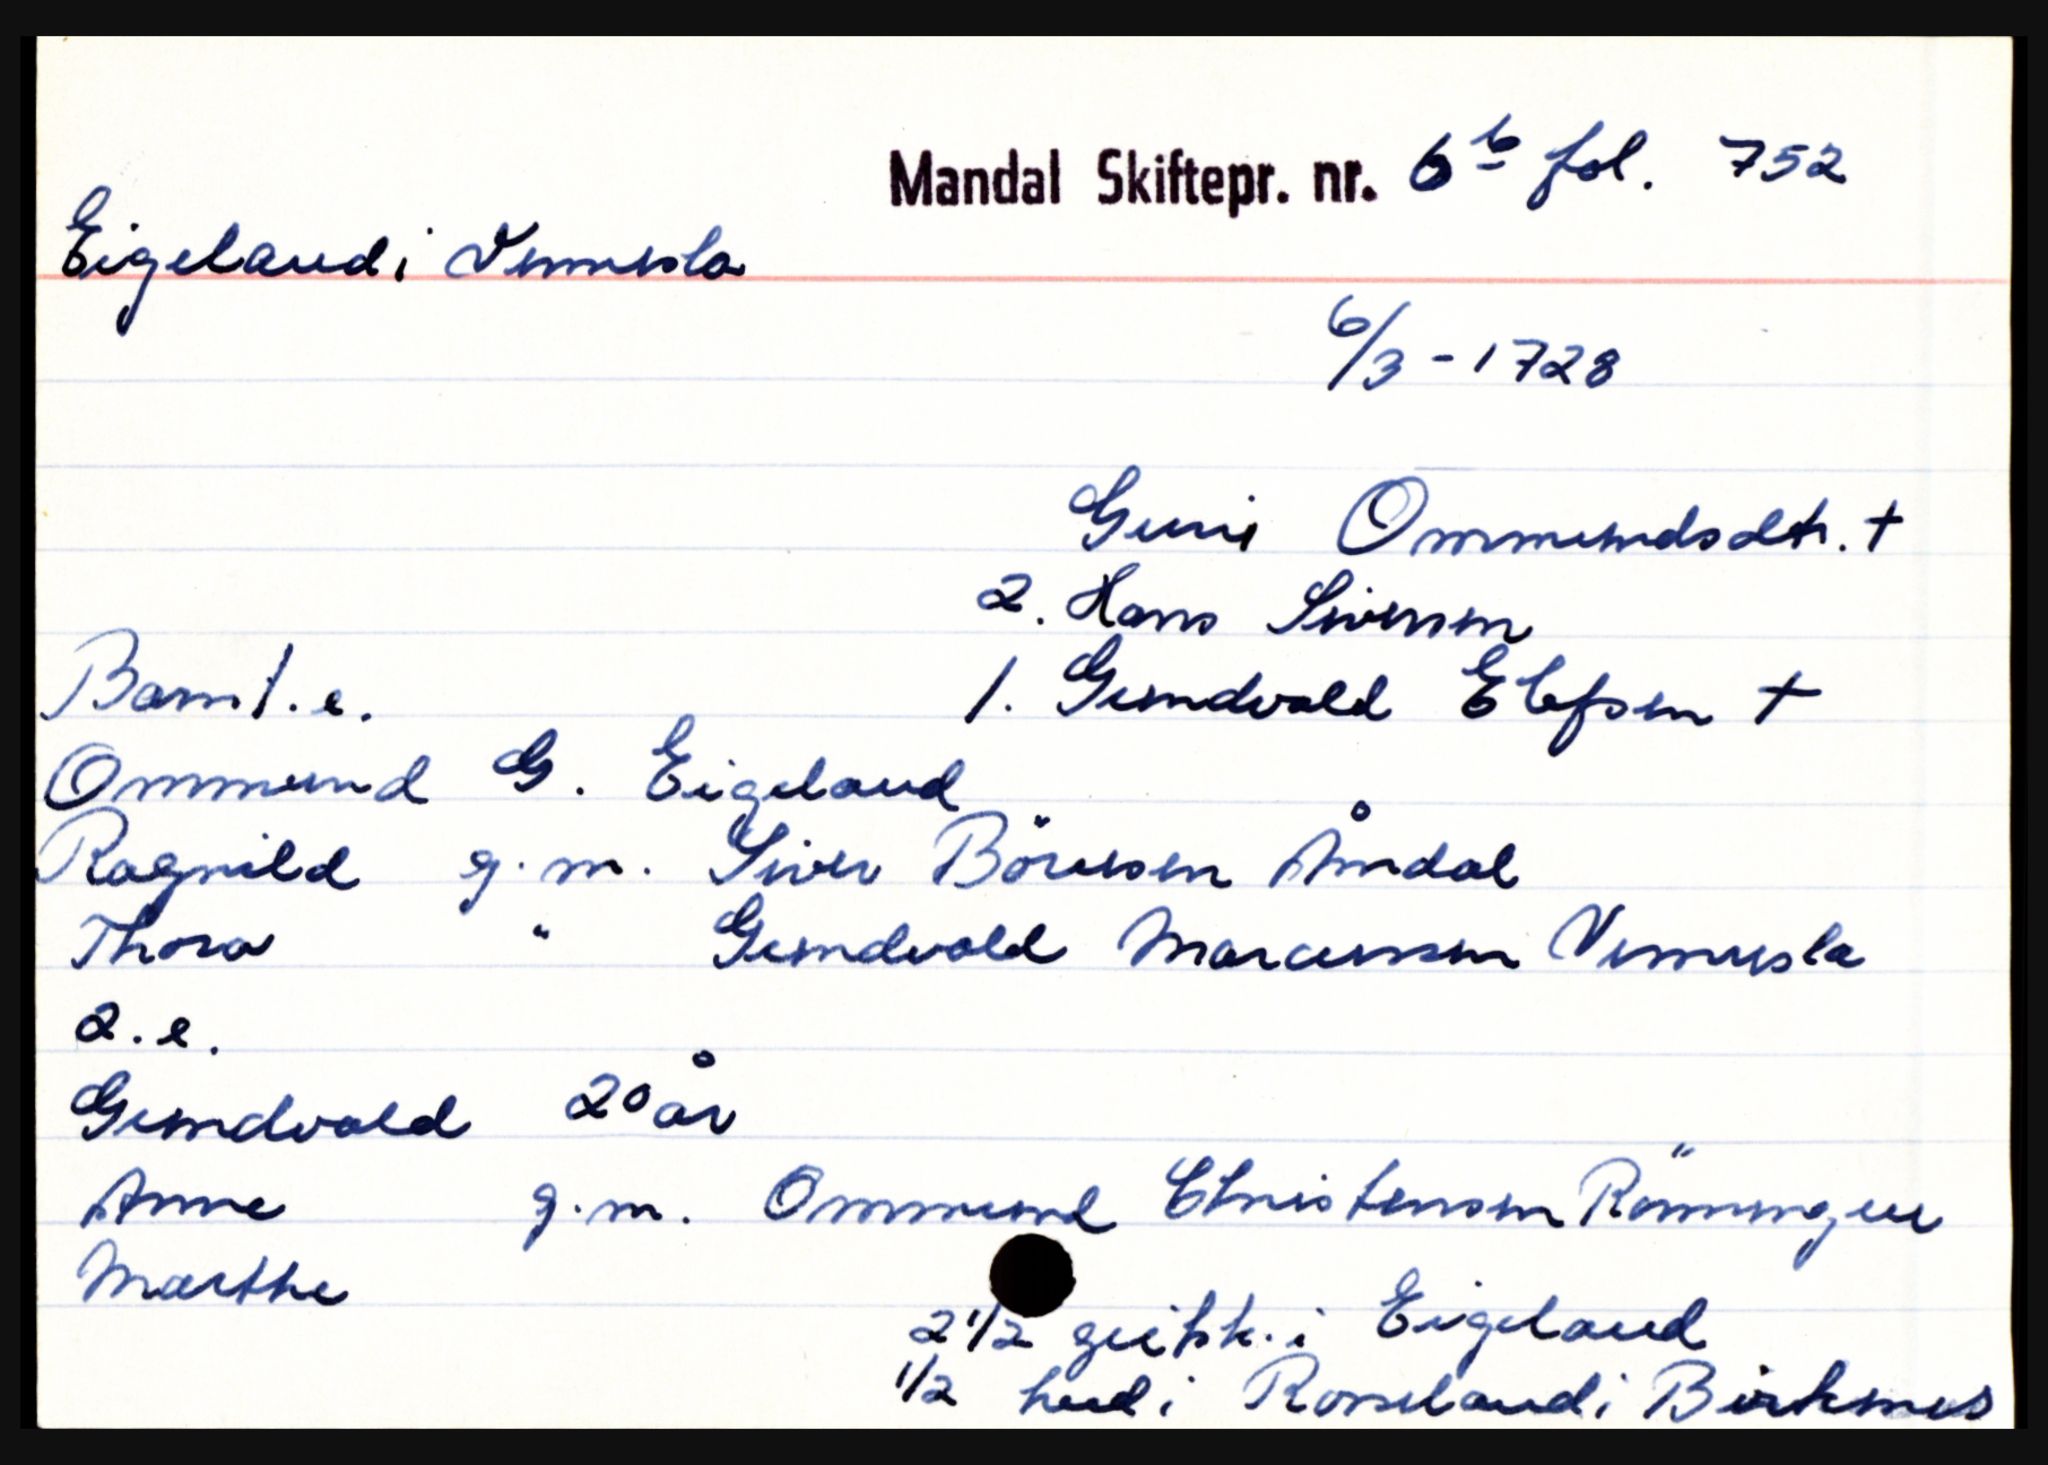 Mandal Skiftepr. nr. 6 b fol. 752
Eigeland i Vennesla
6/3 - 1728
Guri Ommundsdtr. †
2. Hans Siversen
Barn 1. e. 1. Gundvald Elefsen †
Ommund G. Eigeland
Ragnild g. m. Siver Börresen Åmdal
Thora " Gundvald Marcussen Vennesla
2. e.
Gundvald 20 år
Anne g. m. Ommund Christensen Rönningen
Marthe
2 1/2 geitsk. i Eigeland
1/2 hud i Rosseland i Birkenes